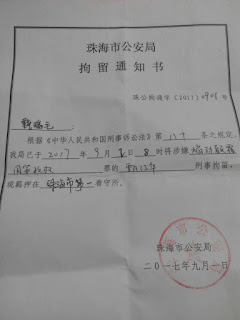 珠海市公安局
拘留通知书
珠公拘通字〔2017〕
根据《中华人民共和国刑事诉讼法》第八十条之规定,
我局已于2017年9月1日8时将涉嫌煽动颠覆
国家政权罪的甄江华刑事拘留,
现羁押在珠海市第一看守所。
珠海市公安局
二〇一七年九月一日